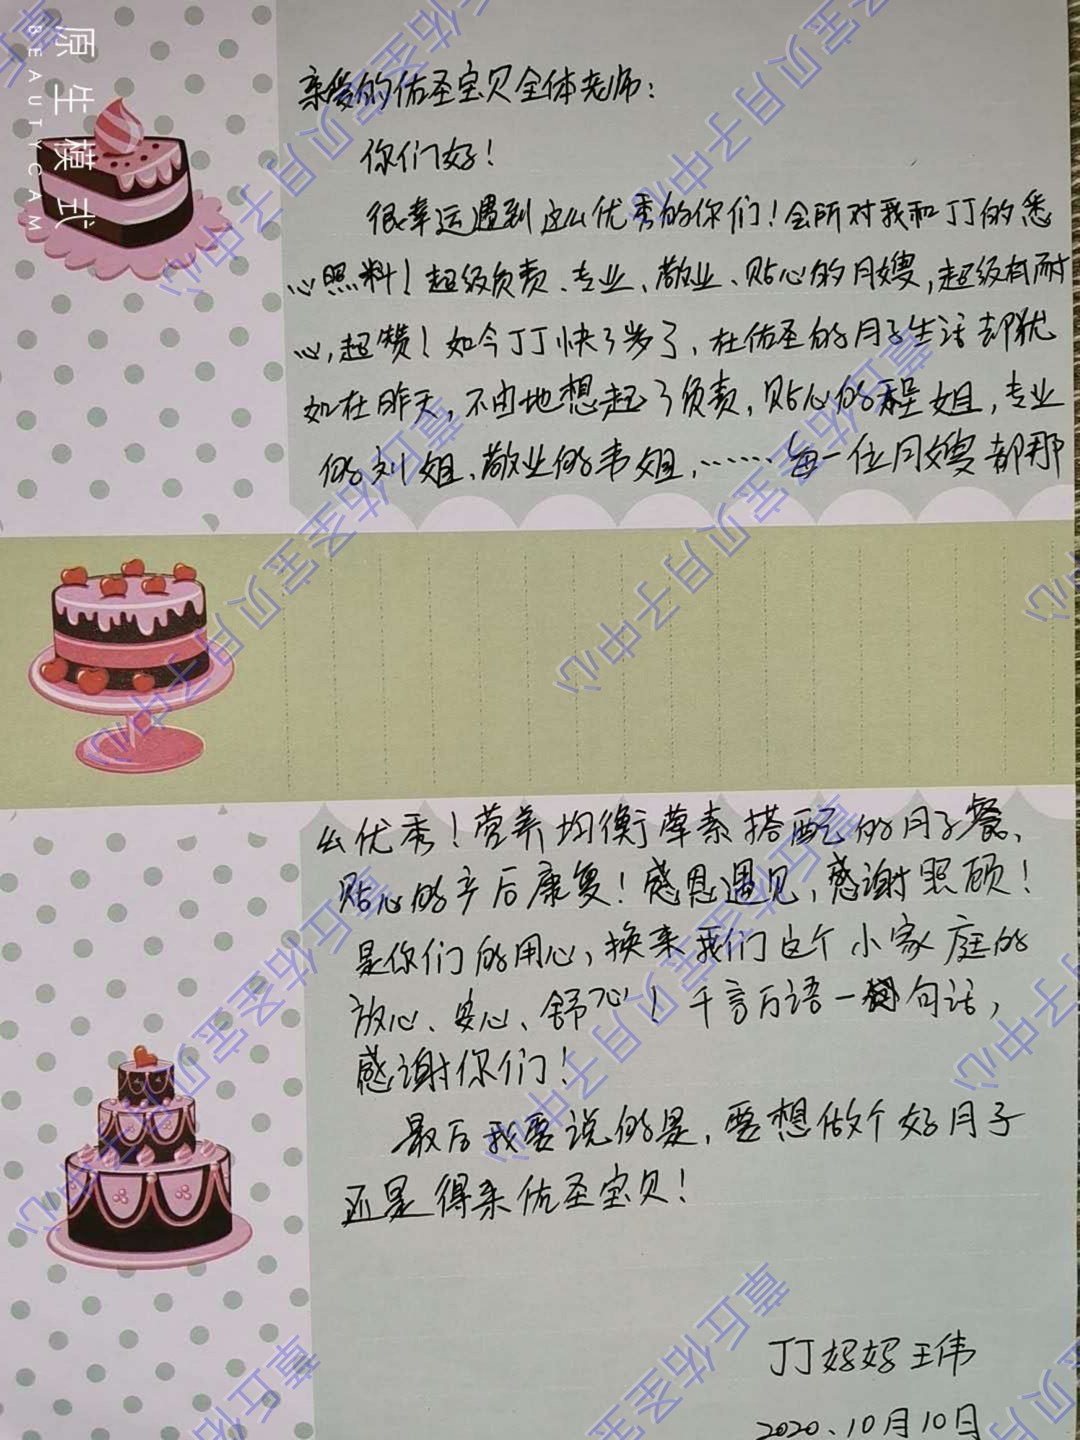 原生模式
BEAUTYCAM
亲爱的佑圣宝贝全体老师：
你们好！
很幸运遇到这么优秀的你们！会所对我和丁丁的悉
心照料！超级负责、专业、敬业、贴心的月嫂，超级有耐
心，超赞！如今丁丁快3岁了，在佑圣的月子生活却犹
如在昨天，不由地想起了负责，贴心的程姐，专业
的刘姐、敬业的韦姐，……每一位月嫂都那
么优秀！营养均衡荤素搭配的月子餐、
贴心的产后康复！感恩遇见，感谢照顾！
是你们的用心，换来我们这个小家庭的
放心、安心、舒心！千言万语一句话，
感谢你们！
最后我要说的是，要想做个好月子
还是得来佑圣宝贝！
丁丁妈妈王伟
2020.10月10日
章丘佑圣宝贝月子中心